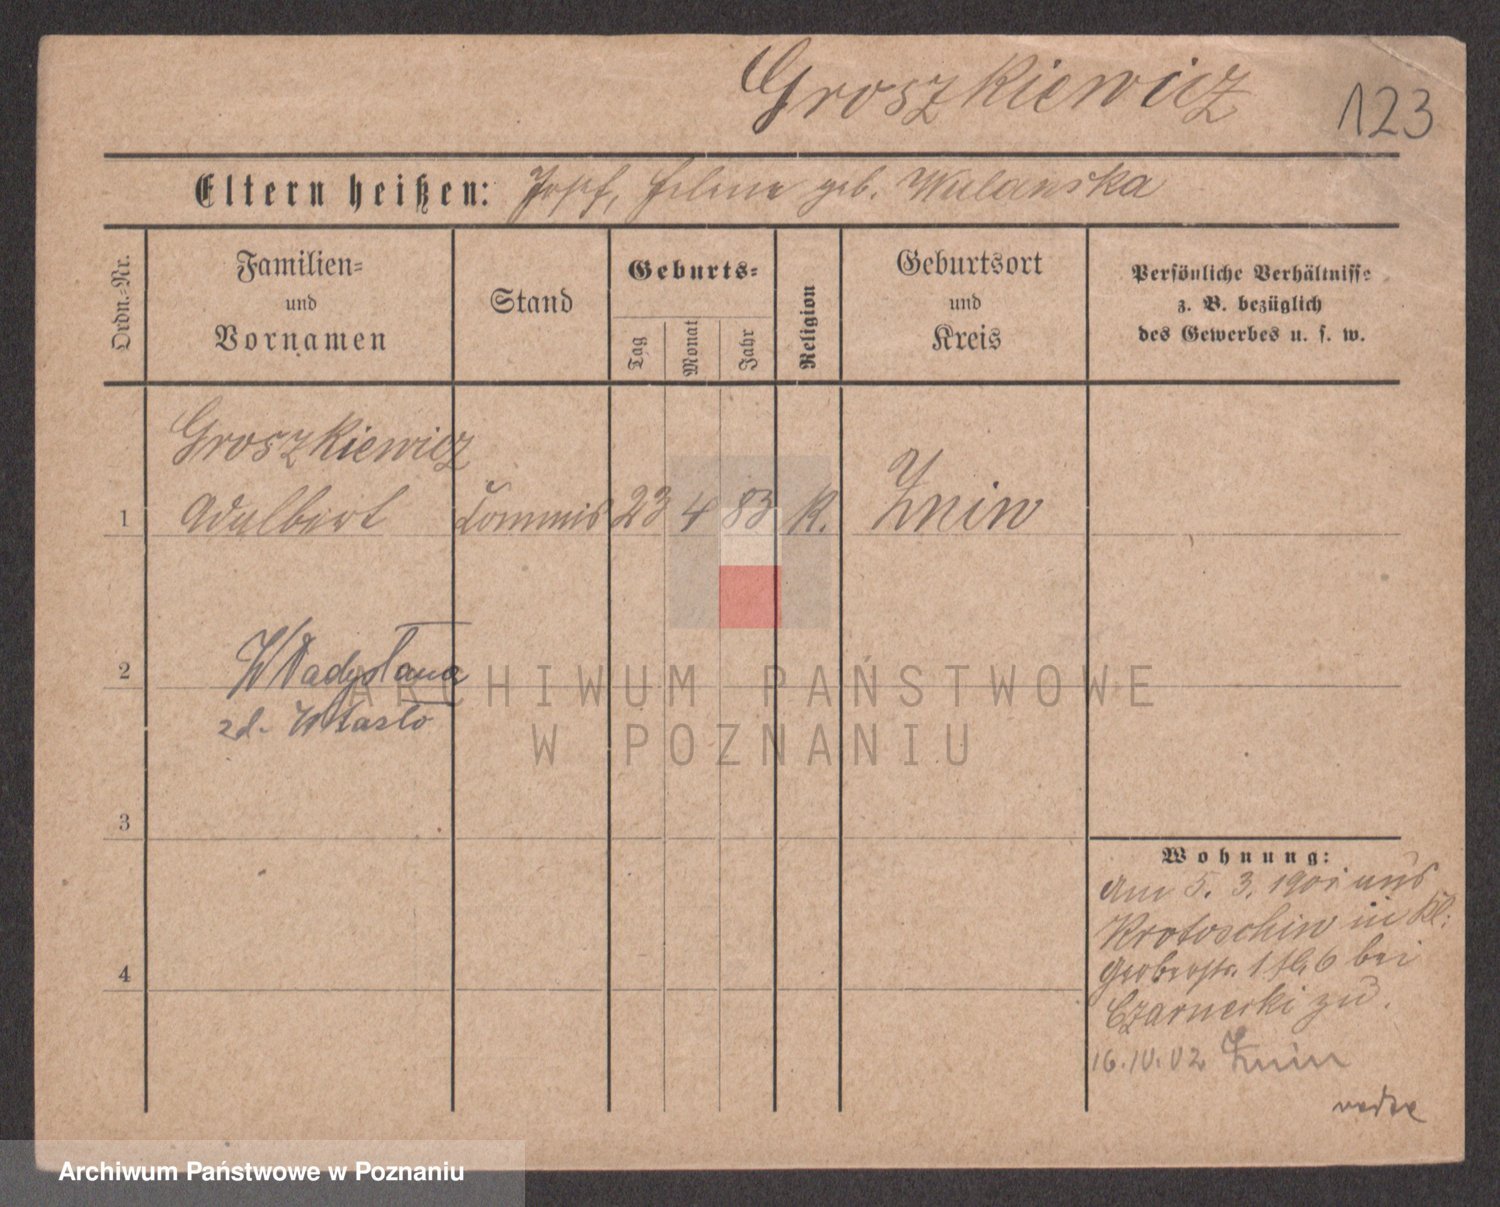 Groszkiewicz
123
Eltern heißen: Josef, geb. Wulanska
Ordn.-Nr.
Familien-
und
Vornamen
Stand
Geburts-
Tag
Monat
Jahr
Religion
Geburtsort
und
Kreis
Persönliche Verhältnisse
z. B. bezüglich
des Gewerbes u. s. w.
Groszkiewicz
1 Adalbert Commis 23 4 83 K. Znin
2 Władysława
zd. Wtasto
ARCHIWUM PAŃSTWOWE
W POZNANIU
3
Wohnung:
Am 5. 3. 1901 aus
Krotoschin in Kl.
Gerberstr. 6 bei
Czarnecki zu.
4
16.IV.02 Znin
Archiwum Państwowe w Poznaniu